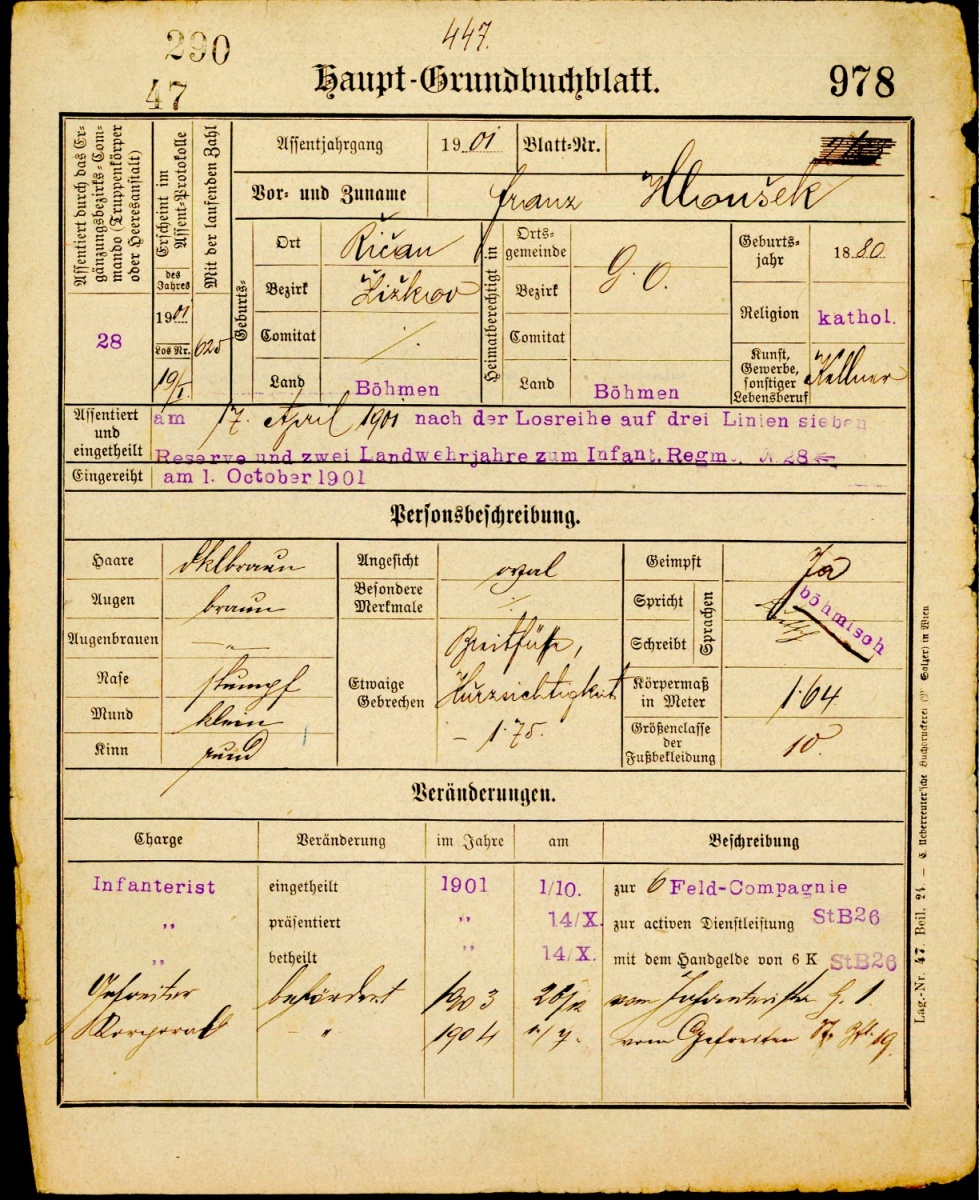 290
447.
47
Haupt-Grundbuchblatt.
978
Assentiert durch das Er-
gänzungsbezirks-Com-
mando (Truppenkörper
oder Heeresanstalt)
28
Erscheint im
Assent-Protokolle
des
Jahres
1901
Los Nr.
19/I.
Mit der laufenden Zahl
625
Assentjahrgang
1901
Blatt-Nr.
Vor- und Zuname
Franz Hloušek
Geburts-
Ort
Ričan
Bezirk
Žižkov
Comitat
Land
Böhmen
Heimatberechtigt in
Orts-
gemeinde
G. O.
Bezirk
Comitat
Land
Böhmen
Geburts-
jahr
1880.
Religion
kathol.
Kunst,
Gewerbe,
sonstiger
Lebensberuf
Kellner
Assentiert
und
eingetheilt
am 17. April 1901 nach der Losreihe auf drei Linien sieben
Reserve und zwei Landwehrjahre zum Infant. Regm. N. 28
Eingereiht
am 1. October 1901
Personsbeschreibung.
Haare
dklbraun
Augen
braun
Augenbrauen
"
Nase
stumpf
Mund
klein
Kinn
rund
Angesicht
oval
Besondere
Merkmale
Etwaige
Gebrechen
Breitfüße,
Kurzsichtigkeit
- 1.75.
Geimpft
Ja
Spricht
Schreibt
Sprachen
böhmisch
Körpermaß
in Meter
1.64
Größenclasse
der
Fußbekleidung
10.
Veränderungen.
Charge
Veränderung
im Jahre
am
Beschreibung
Infanterist eingetheilt 1901 1/10. zur 6 Feld-Compagnie
" präsentiert " 14/X. zur activen Dienstleistung StB26
" betheilt " 14/X. mit dem Handgelde von 6 K StB26
Gefreiter befördert 1903 vom Infanteristen
Korporal " 1904 vom Gefreiten 19
Lag.-Nr. 47. Beil. 24. — C. Ueberreuter'sche Buchdruckerei (M. Salzer) in Wien